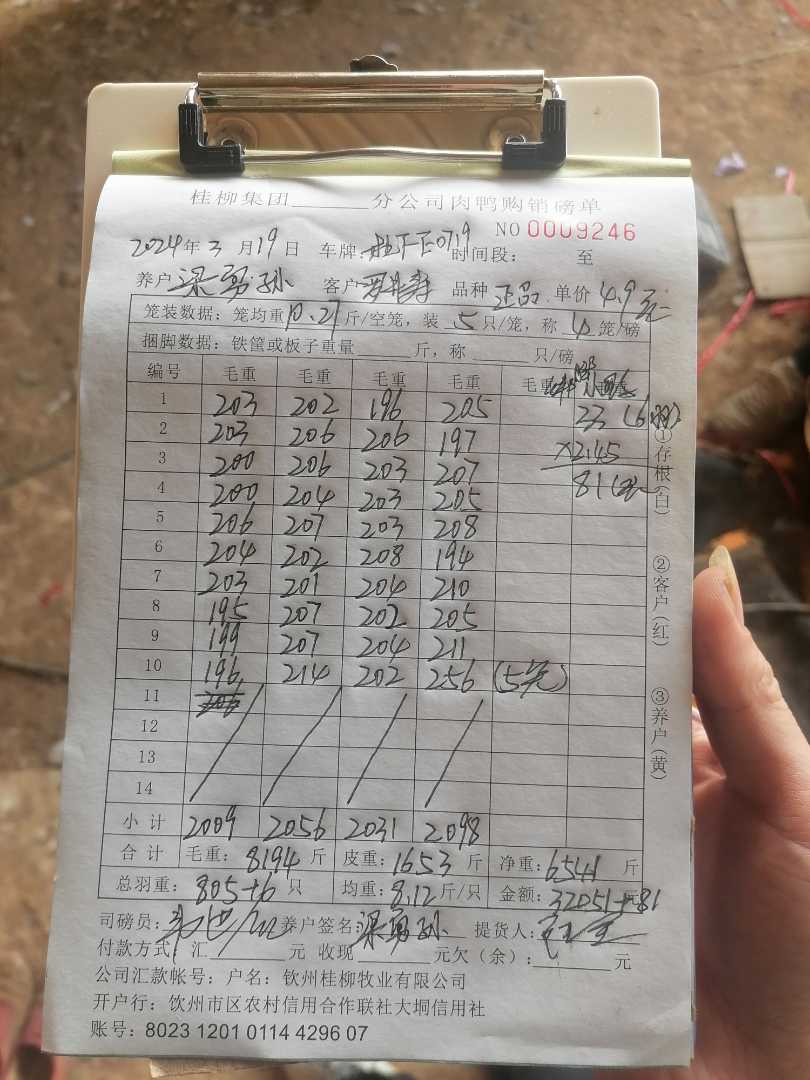 桂柳集团______分公司肉鸭购销磅单
NO 0009246
2024年3月19日 车牌: 0719 时间段: 至
养户 梁勇孙 客户 品种 正品 单价 4.9元
笼装数据: 笼均重10.27斤/空笼, 装 5 只/笼, 称 4 笼/磅
捆脚数据: 铁筐或板子重量____斤, 称____只/磅
编号 毛重 毛重 毛重 毛重 毛重
1 203 202 196 205 33 (6羽)
2 203 206 206 197 ×2.45
3 200 206 203 207 81元
4 200 204 203 205
5 206 207 203 208
6 204 202 208 194
7 203 201 204 210
8 195 207 202 205
9 199 207 204 211
10 196 214 202 256 (5笼)
11
12
13
14
小计 2009 2056 2031 2098
合计 毛重: 8194 斤 皮重: 1653 斤 净重: 6541 斤
总羽重: 805+6 只 均重: 8.12 斤/只 金额: 32051+81 元
司磅员: 养户签名: 梁勇孙 提货人:
付款方式: 汇______元 收现______元欠(余):______元
公司汇款帐号: 户名: 钦州桂柳牧业有限公司
开户行: 钦州市区农村信用合作联社大垌信用社
账号: 8023 1201 0114 4296 07
①存根(白) ②客户(红) ③养户(黄)